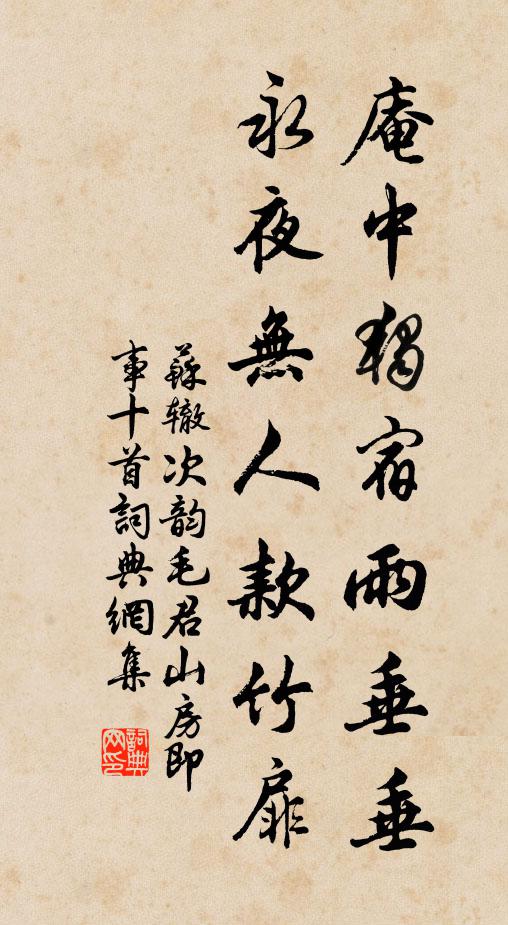 庵中獨宿雨垂垂
永夜無人款竹扉
蘇辙次韵毛君山房即
事十首詞典網集
詞典
网印